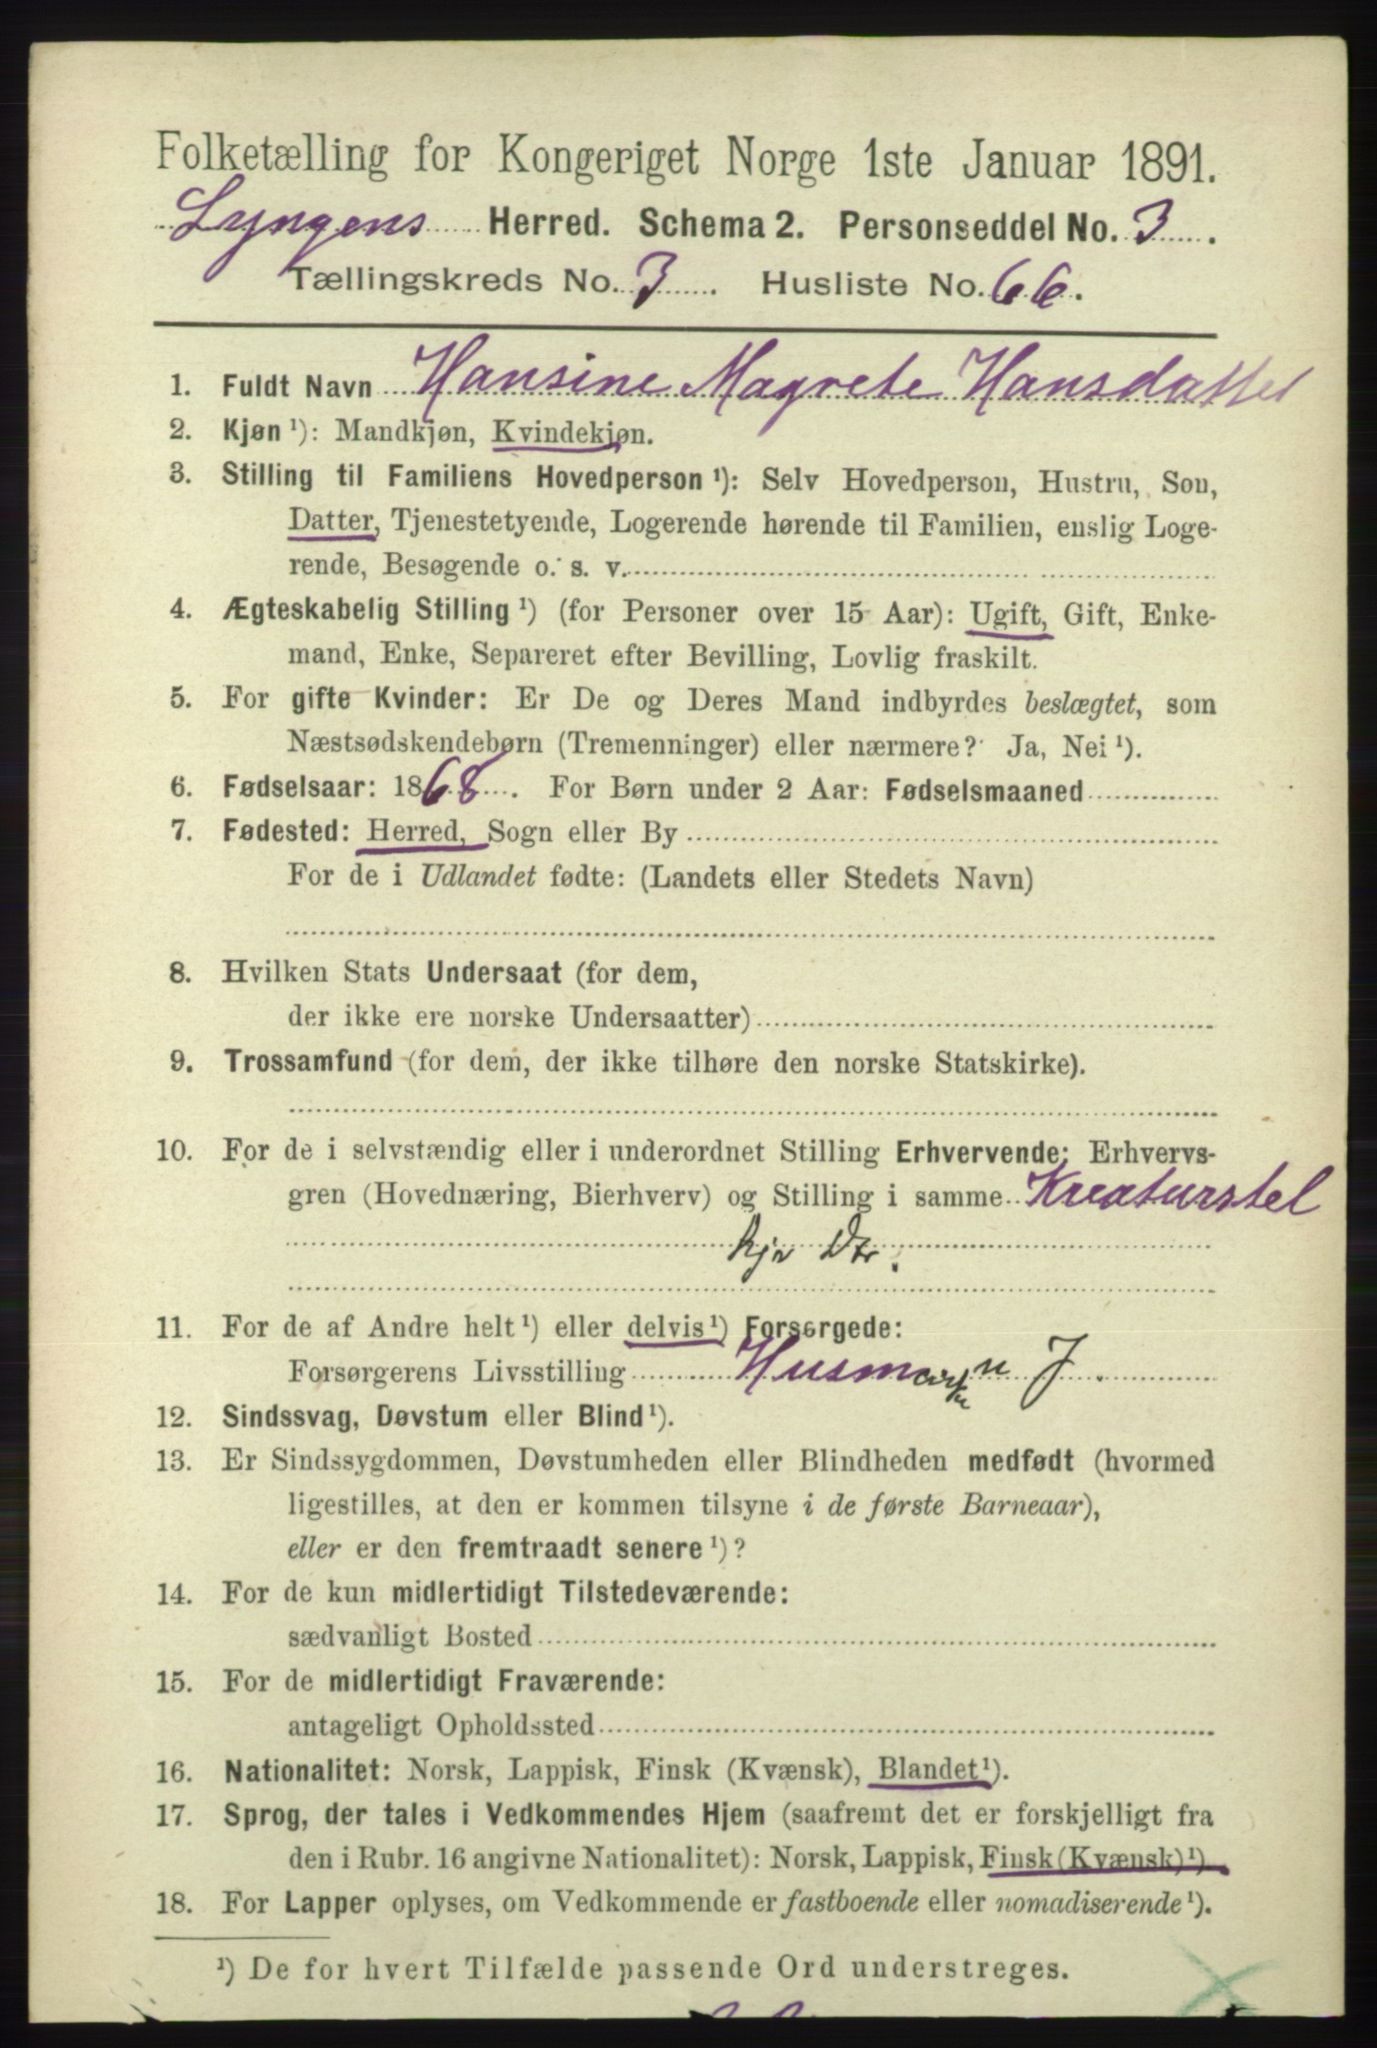 Folketælling for Kongeriget Norge 1ste Januar 1891.
Lyngens Herred. Schema 2. Personseddel No. 3.
Tællingskreds No. 3. Husliste No. 66.
1. Fuldt Navn Hansine Magrete Hansdatter
2. Kjøn ¹): Mandkjøn, Kvindekjøn.
3. Stilling til Familiens Hovedperson ¹): Selv Hovedperson, Hustru, Søn,
Datter, Tjenestetyende, Logerende hørende til Familien, enslig Loge-
rende, Besøgende o. s. v.
4. Ægteskabelig Stilling ¹) (for Personer over 15 Aar): Ugift, Gift, Enke-
mand, Enke, Separeret efter Bevilling, Lovlig fraskilt.
5. For gifte Kvinder: Er De og Deres Mand indbyrdes beslægtet, som
Næstsødskendebørn (Tremenninger) eller nærmere? Ja, Nei ¹).
6. Fødselsaar: 1868. For Børn under 2 Aar: Fødselsmaaned
7. Fødested: Herred, Sogn eller By
For de i Udlandet fødte: (Landets eller Stedets Navn)
8. Hvilken Stats Undersaat (for dem,
der ikke ere norske Undersaatter)
9. Trossamfund (for dem, der ikke tilhøre den norske Statskirke).
10. For de i selvstændig eller i underordnet Stilling Erhvervende: Erhvervs-
gren (Hovednæring, Bierhverv) og Stilling i samme Kreaturstel
hjv Dtr.
11. For de af Andre helt ¹) eller delvis ¹) Forsørgede:
Forsørgerens Livsstilling
12. Sindssvag, Døvstum eller Blind ¹).
13. Er Sindssygdommen, Døvstumheden eller Blindheden medfødt (hvormed
ligestilles, at den er kommen tilsyne i de første Barneaar),
eller er den fremtraadt senere ¹)?
14. For de kun midlertidigt Tilstedeværende:
sædvanligt Bosted
15. For de midlertidigt Fraværende:
antageligt Opholdssted
16. Nationalitet: Norsk, Lappisk, Finsk (Kvænsk), Blandet ¹).
17. Sprog, der tales i Vedkommendes Hjem (saafremt det er forskjelligt fra
den i Rubr. 16 angivne Nationalitet): Norsk, Lappisk, Finsk (Kvænsk) ¹).
18. For Lapper oplyses, om Vedkommende er fastboende eller nomadiserende ¹).
¹) De for hvert Tilfælde passende Ord understreges.